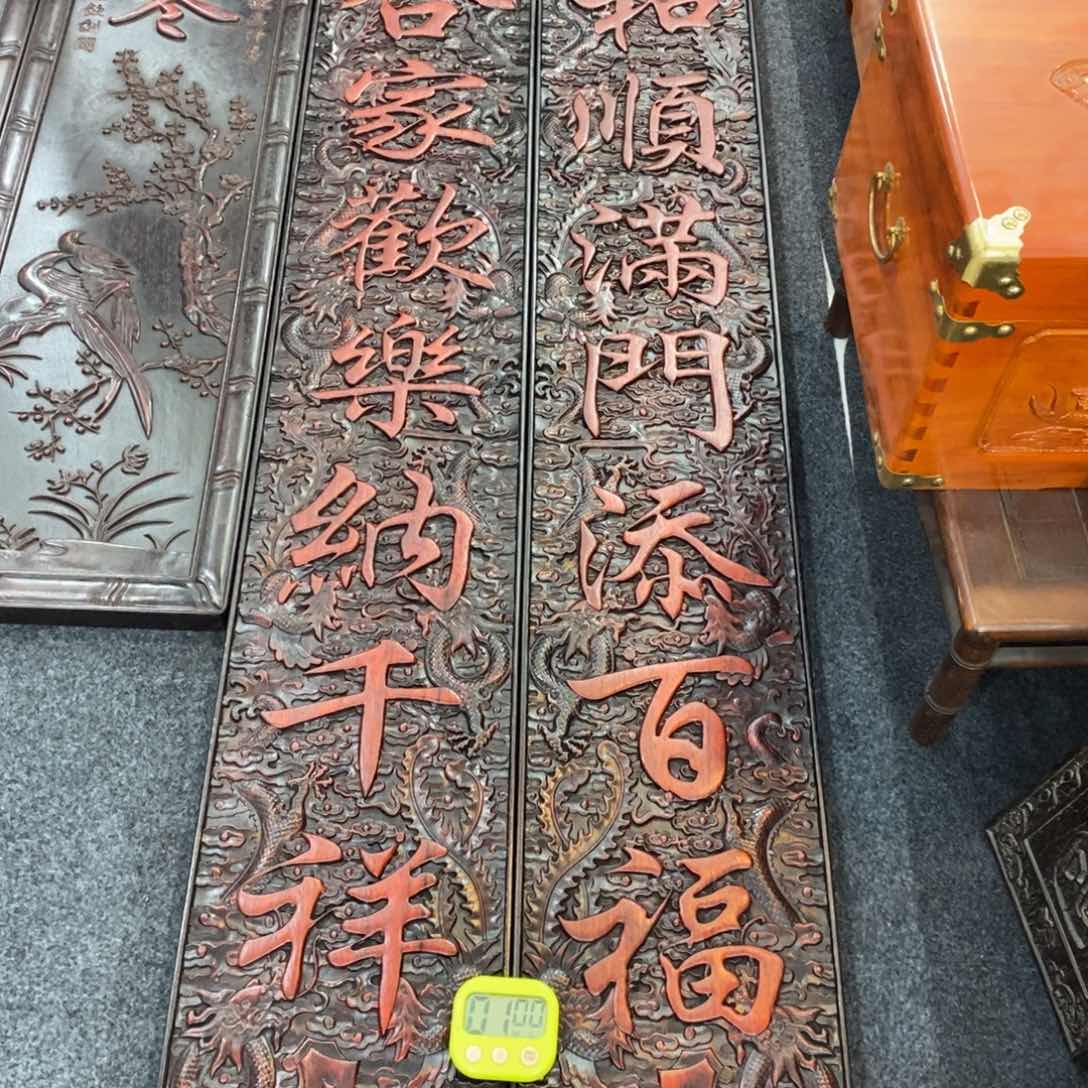 和順滿門添百福
合家歡樂納千祥
01 00